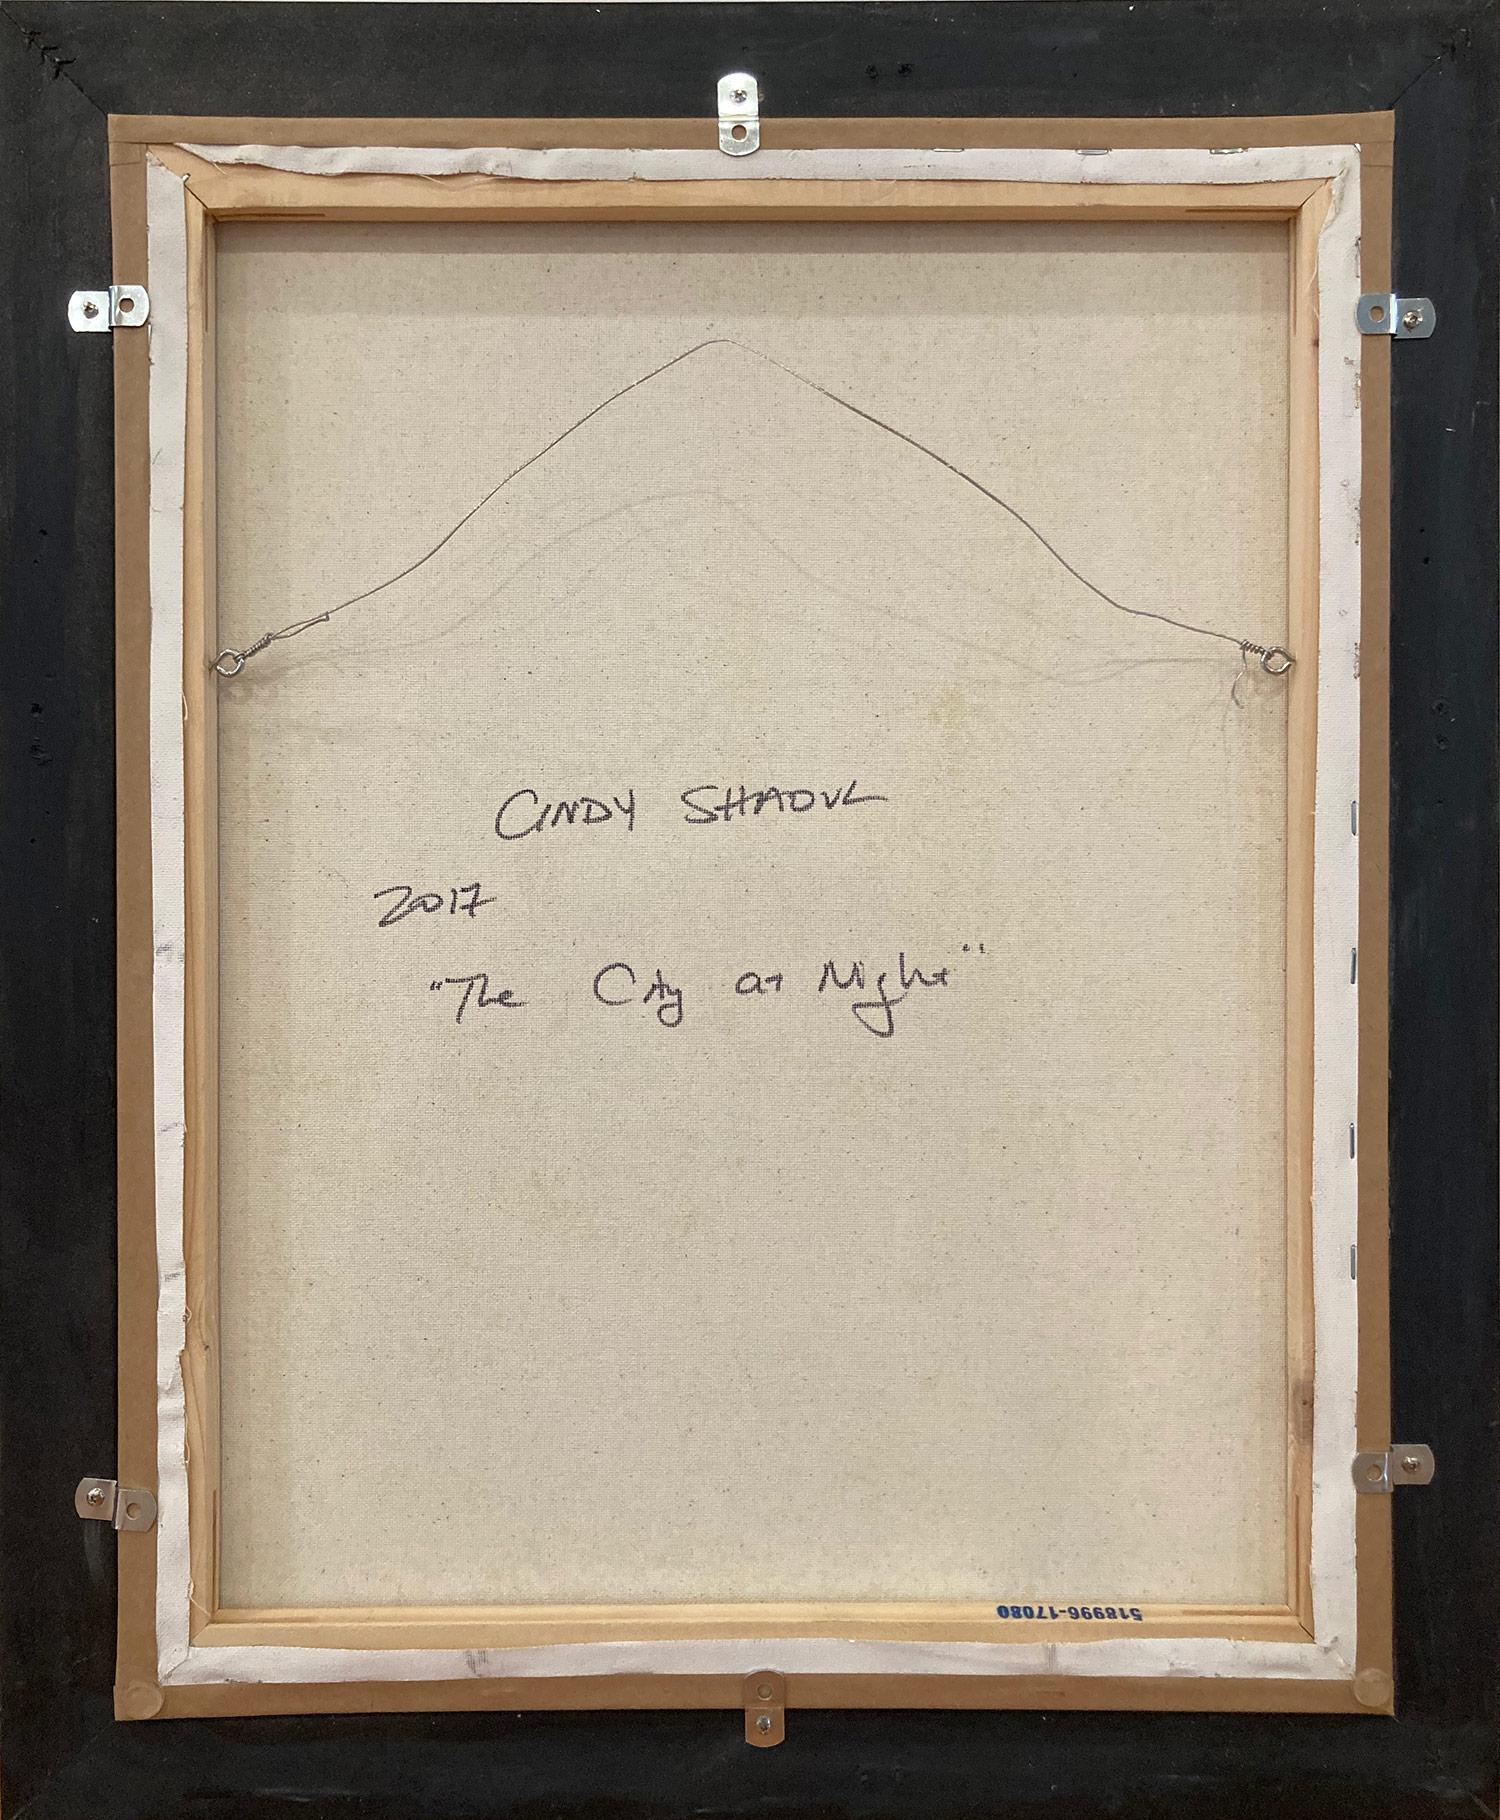 CINDY SHAOUL
2017
"The City at Night"
518996-17080